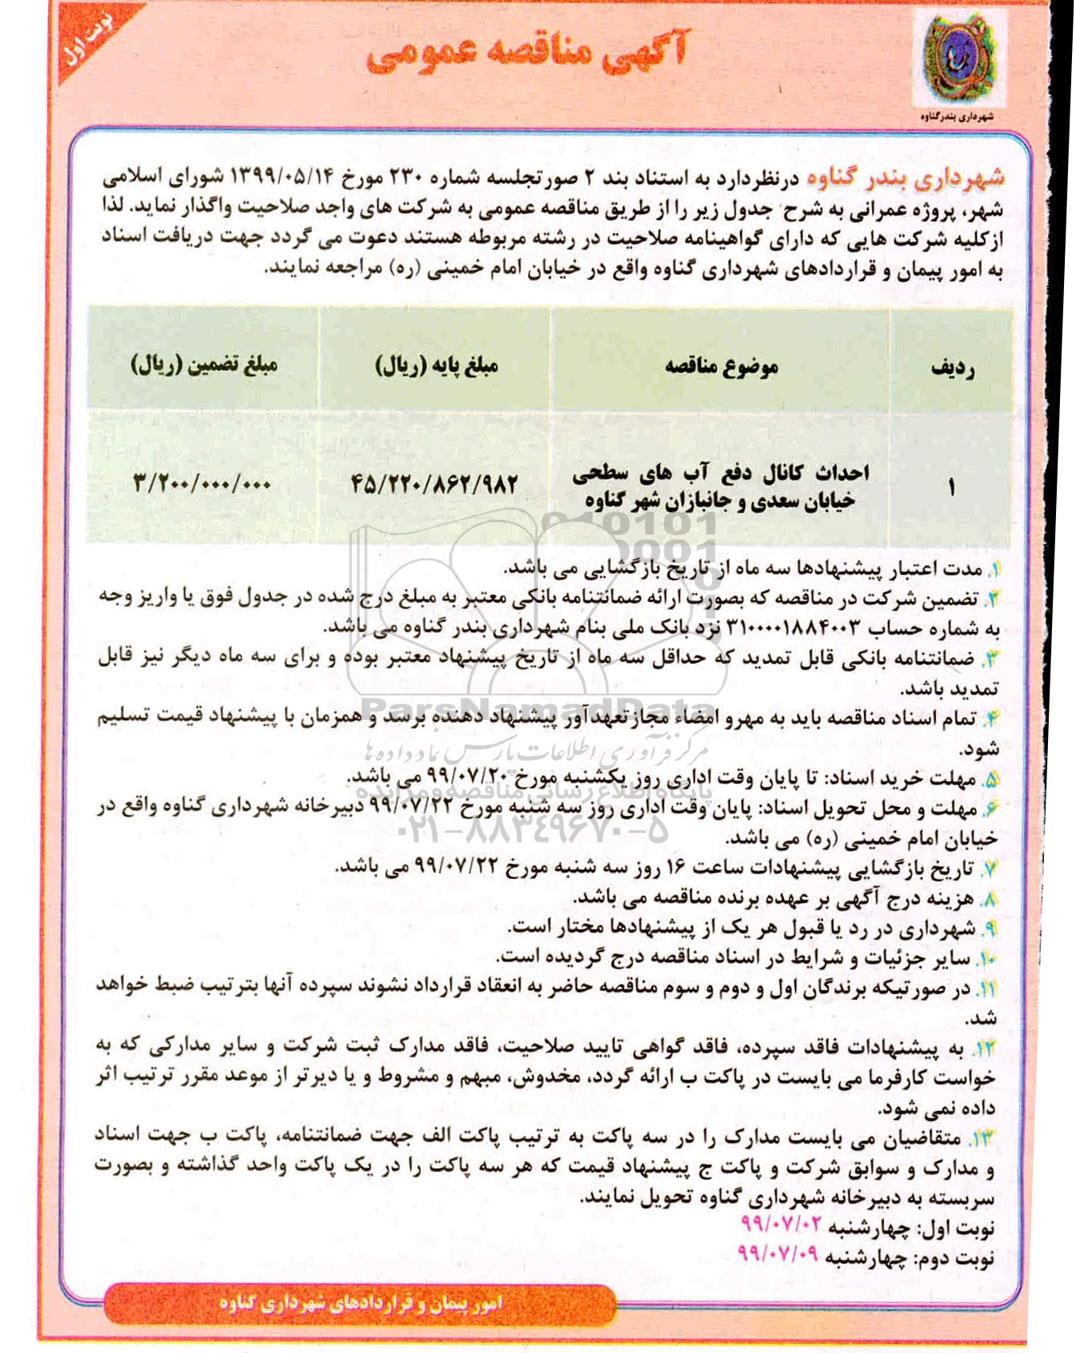 نوبت اول
آگهی مناقصه عمومی
شهرداری بندرگناوه
شهرداری بندر گناوه درنظردارد به استناد بند ۲ صورتجلسه شماره ۲۳۰ مورخ ۱۳۹۹/۰۵/۱۴ شورای اسلامی
شهر، پروژه عمرانی به شرح جدول زیر را از طریق مناقصه عمومی به شرکت های واجد صلاحیت واگذار نماید. لذا
ازکلیه شرکت هایی که دارای گواهینامه صلاحیت در رشته مربوطه هستند دعوت می گردد جهت دریافت اسناد
به امور پیمان و قراردادهای شهرداری گناوه واقع در خیابان امام خمینی (ره) مراجعه نمایند.
ردیف موضوع مناقصه مبلغ پایه (ریال) مبلغ تضمین (ریال)
۱ احداث کانال دفع آب های سطحی خیابان سعدی و جانبازان شهر گناوه ۴۵/۲۲۰/۸۶۲/۹۸۲ ۳/۲۰۰/۰۰۰/۰۰۰
۱. مدت اعتبار پیشنهادها سه ماه از تاریخ بازگشایی می باشد.
۲. تضمین شرکت در مناقصه که بصورت ارائه ضمانتنامه بانکی معتبر به مبلغ درج شده در جدول فوق یا واریز وجه
به شماره حساب ۳۱۰۰۰۰۱۸۸۴۰۰۳ نزد بانک ملی بنام شهرداری بندر گناوه می باشد.
۳. ضمانتنامه بانکی قابل تمدید که حداقل سه ماه از تاریخ پیشنهاد معتبر بوده و برای سه ماه دیگر نیز قابل
تمدید باشد.
ParsNamadData
۴. تمام اسناد مناقصه باید به مهرو امضاء مجازتعهدآور پیشنهاد دهنده برسد و همزمان با پیشنهاد قیمت تسلیم
شود.
مرکز فرآوری اطلاعات پارس نماد داده ها
۵. مهلت خرید اسناد: تا پایان وقت اداری روز یکشنبه مورخ ۹۹/۰۷/۲۰ می باشد.
پایگاه اطلاع رسانی مناقصه و مزایده
۶. مهلت و محل تحویل اسناد: پایان وقت اداری روز سه شنبه مورخ ۹۹/۰۷/۲۲ دبیرخانه شهرداری گناوه واقع در
خیابان امام خمینی (ره) می باشد.
۰۲۱-۸۸۳۴۹۶۷۰-۵
۷. تاریخ بازگشایی پیشنهادات ساعت ۱۶ روز سه شنبه مورخ ۹۹/۰۷/۲۲ می باشد.
۸. هزینه درج آگهی بر عهده برنده مناقصه می باشد.
۹. شهرداری در رد یا قبول هر یک از پیشنهادها مختار است.
۱۰. سایر جزئیات و شرایط در اسناد مناقصه درج گردیده است.
۱۱. در صورتیکه برندگان اول و دوم و سوم مناقصه حاضر به انعقاد قرارداد نشوند سپرده آنها بترتیب ضبط خواهد
شد.
۱۲. به پیشنهادات فاقد سپرده، فاقد گواهی تایید صلاحیت، فاقد مدارک ثبت شرکت و سایر مدارکی که به
خواست کارفرما می بایست در پاکت ب ارائه گردد، مخدوش، مبهم و مشروط و یا دیرتر از موعد مقرر ترتیب اثر
داده نمی شود.
۱۳. متقاضیان می بایست مدارک را در سه پاکت به ترتیب پاکت الف جهت ضمانتنامه، پاکت ب جهت اسناد
و مدارک و سوابق شرکت و پاکت ج پیشنهاد قیمت که هر سه پاکت را در یک پاکت واحد گذاشته و بصورت
سربسته به دبیرخانه شهرداری گناوه تحویل نمایند.
نوبت اول: چهارشنبه ۹۹/۰۷/۰۲
نوبت دوم: چهارشنبه ۹۹/۰۷/۰۹
امور پیمان و قراردادهای شهرداری گناوه